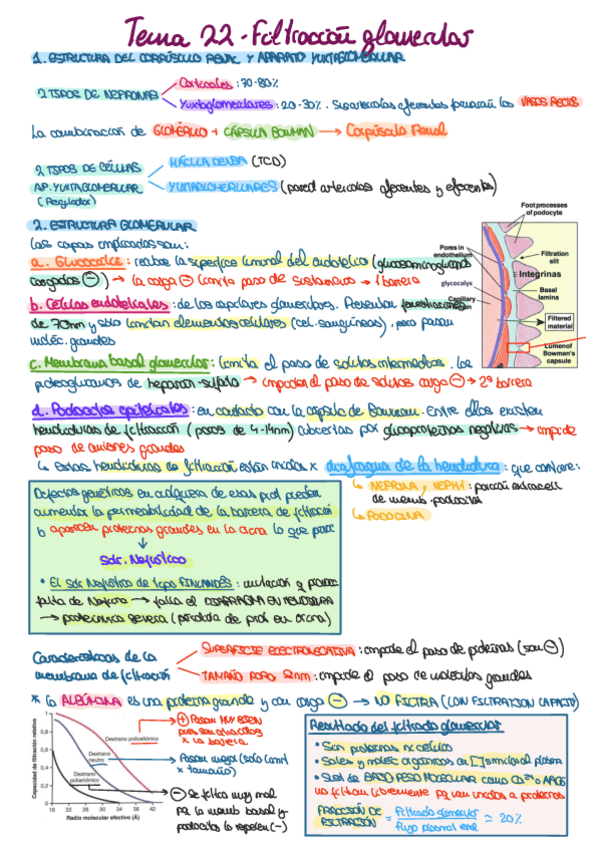 Tema 22 - Filtración glomerular
1. ESTRUCTURA DEL CORPÚSCULO RENAL Y APARATO YUXTAGLOMERULAR
2 TIPOS DE NEFRONAS
Corticales: 70-80%
Yuxtaglomerulares: 20-30%. Sus arteriolas eferentes formarán los VASOS RECTOS
La combinación de GLOMÉRULO + CÁPSULA BOWMAN → Corpúsculo Renal
2 TIPOS DE CÉLULAS
AP. YUXTAGLOMERULAR
(Regulador)
MÁCULA DENSA (TCD)
YUXTAGLOMERULARES (pared arteriolas aferentes y eferentes)
2. ESTRUCTURA GLOMERULAR
Las capas implicadas son:
a. Glucocálix: recubre la superficie luminal del endotelio (glucosaminoglicanos
cargados ⊖) → la carga ⊖ limita paso de sustancias → 1ª barrera
b. Células endoteliales: de los capilares glomerulares. Presentan fenestraciones
de 70nm y sólo limitan elementos celulares (cel. sanguíneas), pero pasan
moléc. grandes
c. Membrana basal glomerular: limita el paso de solutos intermedios. Los
proteoglicanos de heparán-sulfato → impiden el paso de solutos carga ⊖ → 2ª barrera
d. Podocitos epiteliales: en contacto con la cápsula de Bowman. Entre ellos existen
hendiduras de filtración (poros de 4-14nm) cubiertas por glucoproteínas negativas → impide
paso de aniones grandes
↳ estas hendiduras de filtración están unidas x diafragma de la hendidura: que contiene:
↳ NEFRINA y NEPH1: porción extracel.
de memb. podocitos
↳ PODOCINA
Foot processes
of podocyte
Pores in
endothelium
Filtration
slit
Integrinas
glycocalyx
Basal
lamina
Capillary
Filtered
material
Lumen of
Bowman's
capsule
Defectos genéticos en cualquiera de esas prot. pueden
aumentar la permeabilidad de la barrera de filtración
y aparecen proteínas grandes en la orina lo que
↓
Sdr. Nefrótico
• El Sdr Nefrótico de tipo FINLANDÉS: mutación q
falta de Nefrina → falla el DIAFRAGMA EN HENDIDURA
→ proteinuria severa (pérdida de prot. en orina)
Características de la
membrana de filtración
SUPERFICIE ELECTRONEGATIVA: impide el paso de proteínas (son ⊖)
TAMAÑO PORO 8nm: impide el paso de moléculas grandes
* La ALBÚMINA es una proteína grande y con carga ⊖ → NO FILTRA (LOW FILTRATION CAPACITY)
Capacidad de filtración relativa
1,0
0,8
0,6
0,4
0,2
0
Dextrano policatiónico
Dextrano
neutro
Dextrano
polianiónico
18 22 26 30 34 38 42
Radio molecular efectivo (Å)
⊕ Pasan MUY BIEN
pues son atraídos
x la barrera
Pasan mejor (solo limit
x tamaño)
⊖ Se filtra muy mal
pq la memb basal y
podocitos lo repelen (-)
Resultado del filtrado glomerular
• Sin proteínas ni células
• Sales y moléc. orgánicas en [ ] similar al plasma
• Sust. de BAJO PESO MOLECULAR como Ca²⁺ o AAGG
no filtran libremente pq van unidos a proteínas
FRACCIÓN DE FILTRACIÓN = Filtrado glomerular / Flujo plasmat. renal ≃ 20%